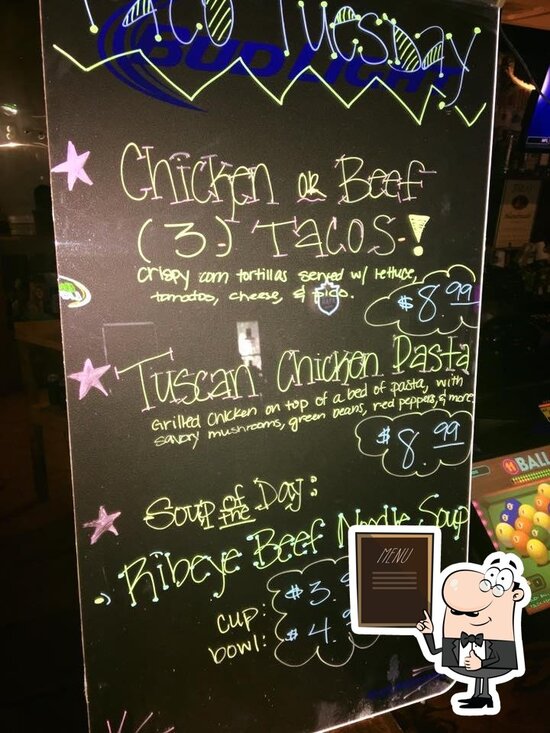 Taco Tuesday
BUD LIGHT
Chicken OR Beef
(3) TACOS!
Crispy corn tortillas served w/ lettuce,
tomatoes, cheese, & pico.
$8.99
Tuscan Chicken Pasta
Grilled chicken on top of a bed of pasta, with
savory mushrooms, green beans, red peppers, & more
$8.99
Soup of the Day:
Ribeye Beef Noodle Soup
cup: $3.9
bowl: $4.9
MENU
11 BALL